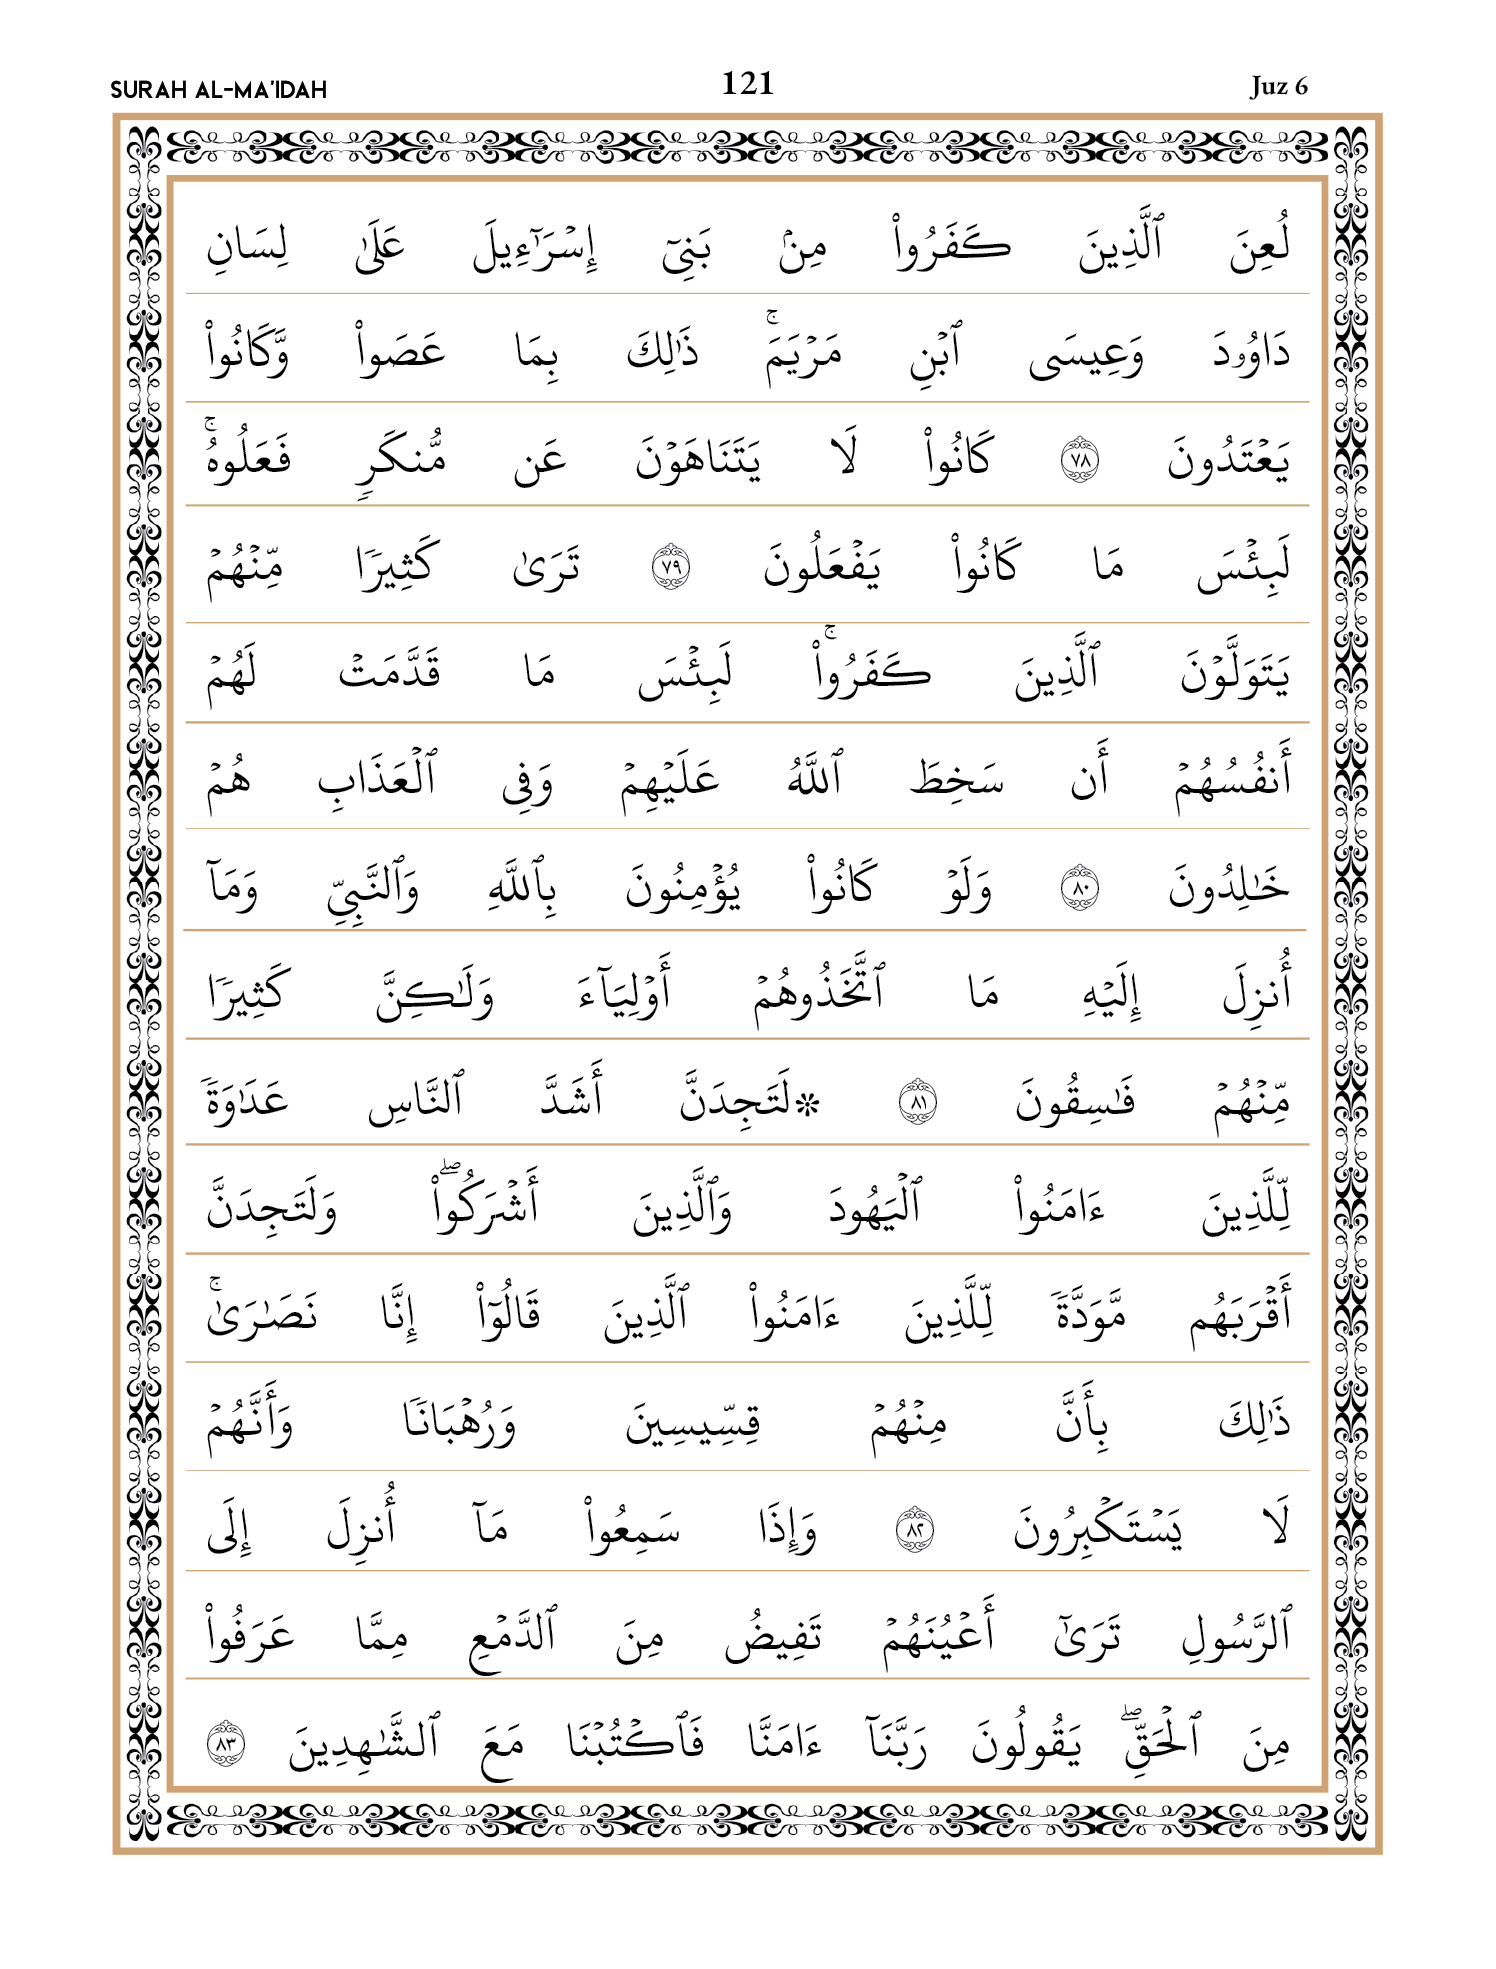 SURAH AL-MA'IDAH 121 Juz 6
لُعِنَ ٱلَّذِينَ كَفَرُوا۟ مِنۢ بَنِىٓ إِسْرَٰٓءِيلَ عَلَىٰ لِسَانِ
دَاوُۥدَ وَعِيسَى ٱبْنِ مَرْيَمَ ۚ ذَٰلِكَ بِمَا عَصَوا۟ وَّكَانُوا۟
يَعْتَدُونَ ٧٨ كَانُوا۟ لَا يَتَنَاهَوْنَ عَن مُّنكَرٍ فَعَلُوهُ ۚ
لَبِئْسَ مَا كَانُوا۟ يَفْعَلُونَ ٧٩ تَرَىٰ كَثِيرًا مِّنْهُمْ
يَتَوَلَّوْنَ ٱلَّذِينَ كَفَرُوا۟ ۚ لَبِئْسَ مَا قَدَّمَتْ لَهُمْ
أَنفُسُهُمْ أَن سَخِطَ ٱللَّهُ عَلَيْهِمْ وَفِى ٱلْعَذَابِ هُمْ
خَـٰلِدُونَ ٨٠ وَلَوْ كَانُوا۟ يُؤْمِنُونَ بِٱللَّهِ وَٱلنَّبِىِّ وَمَآ
أُنزِلَ إِلَيْهِ مَا ٱتَّخَذُوهُمْ أَوْلِيَآءَ وَلَـٰكِنَّ كَثِيرًا
مِّنْهُمْ فَـٰسِقُونَ ٨١ *لَتَجِدَنَّ أَشَدَّ ٱلنَّاسِ عَدَٰوَةً
لِّلَّذِينَ ءَامَنُوا۟ ٱلْيَهُودَ وَٱلَّذِينَ أَشْرَكُوا۟ ۖ وَلَتَجِدَنَّ
أَقْرَبَهُم مَّوَدَّةً لِّلَّذِينَ ءَامَنُوا۟ ٱلَّذِينَ قَالُوٓا۟ إِنَّا نَصَـٰرَىٰ ۚ
ذَٰلِكَ بِأَنَّ مِنْهُمْ قِسِّيسِينَ وَرُهْبَانًا وَأَنَّهُمْ
لَا يَسْتَكْبِرُونَ ٨٢ وَإِذَا سَمِعُوا۟ مَآ أُنزِلَ إِلَى
ٱلرَّسُولِ تَرَىٰٓ أَعْيُنَهُمْ تَفِيضُ مِنَ ٱلدَّمْعِ مِمَّا عَرَفُوا۟
مِنَ ٱلْحَقِّ ۖ يَقُولُونَ رَبَّنَآ ءَامَنَّا فَٱكْتُبْنَا مَعَ ٱلشَّـٰهِدِينَ ٨٣